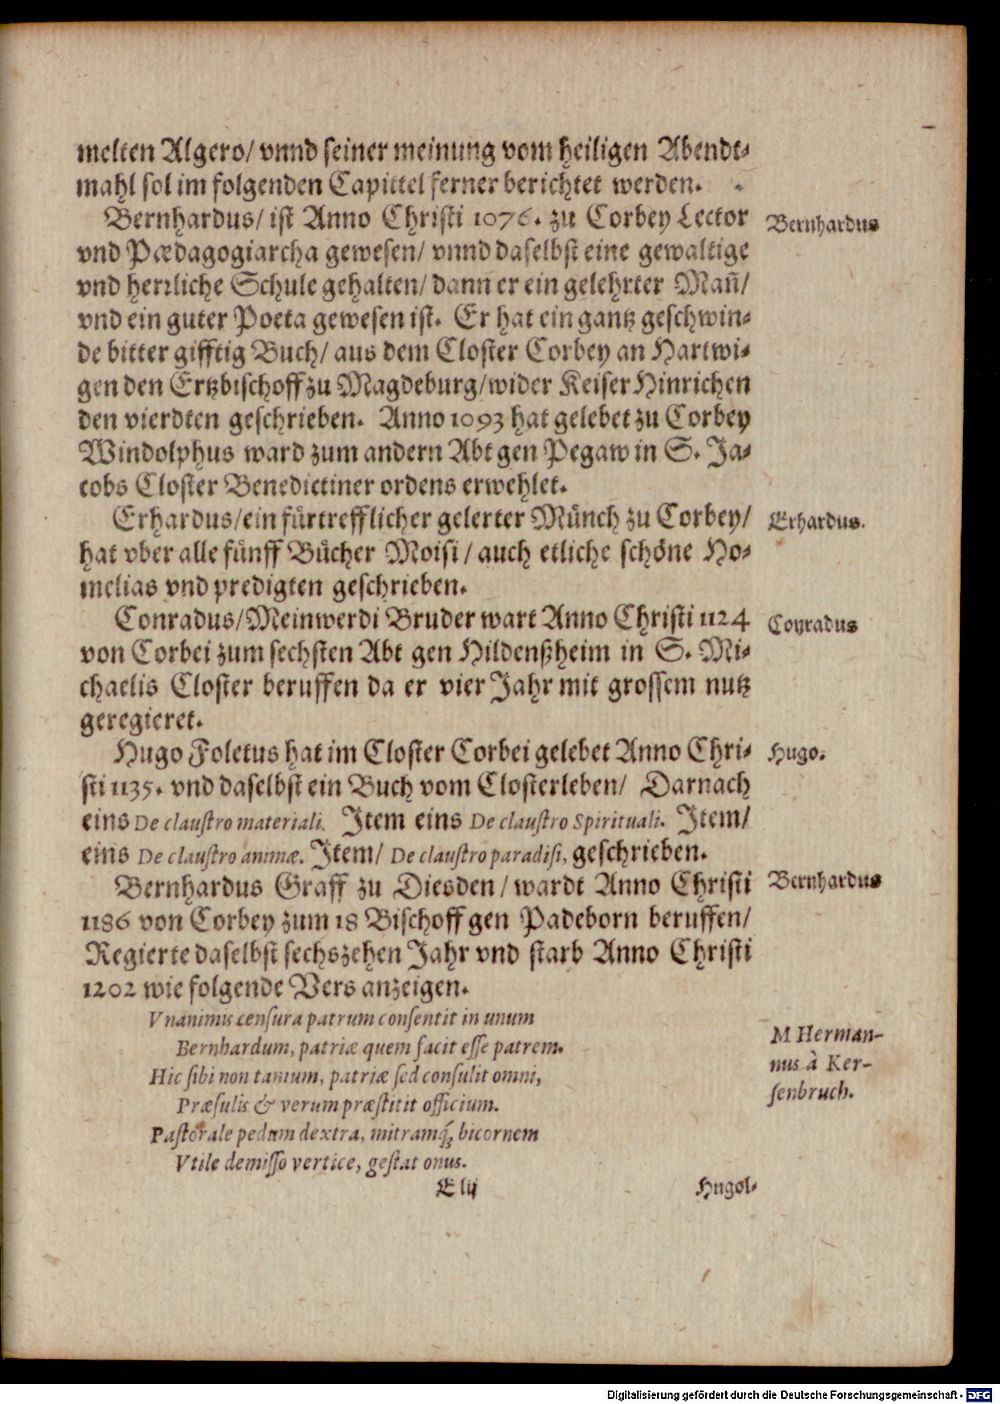 melten Algero/ vnnd seiner meinung vom heiligen Abendt-
mahl sol im folgenden Capittel ferner berichtet werden.
Bernhardus/ ist Anno Christi 1076. zu Corbey Lector
Bernhardus
vnd Pædagogiarcha gewesen/ vnnd daselbst eine gewaltige
vnd herrliche Schule gehalten/ dann er ein gelehrter Mañ/
vnd ein guter Poeta gewesen ist. Er hat ein gantz geschwin-
de bitter gifftig Buch/ aus dem Closter Corbey an Hartwi-
gen den Ertzbischoff zu Magdeburg/ wider Keiser Hinrichen
den vierdten geschrieben. Anno 1093 hat gelebet zu Corbey
Windolphus ward zum andern Abt gen Pegaw in S. Ja-
cobs Closter Benedictiner ordens erwehlet.
Erhardus/ ein fürtrefflicher gelerter Münch zu Corbey/
Erhardus.
hat vber alle fünff Bücher Moisi/ auch etliche schöne Ho-
melias vnd predigten geschrieben.
Conradus/ Meinwerdi Bruder wart Anno Christi 1124
Conradus
von Corbei zum sechsten Abt gen Hildenßheim in S. Mi-
chaelis Closter beruffen da er vier Jahr mit grossem nutz
geregieret.
Hugo Foletus hat im Closter Corbei gelebet Anno Chri-
Hugo.
sti 1135. vnd daselbst ein Buch vom Closterleben/ Darnach
eins De claustro materiali. Item eins De claustro Spirituali. Item/
eins De claustro animæ. Item/ De claustro paradisi, geschrieben.
Bernhardus Graff zu Diesden/ wardt Anno Christi
Bernhardus
1186 von Corbey zum 18 Bischoff gen Padeborn beruffen/
Regierte daselbst sechszehen Jahr vnd starb Anno Christi
1202 wie folgende Vers anzeigen.
Vnanimis censura patrum consentit in unum
Bernhardum, patriæ quem facit esse patrem.
Hic sibi non tantum, patriæ sed consulit omni,
Præsulis & verum præstitit officium.
Pastorale pedum dextra, mitramq́; bicornem
Vtile demisso vertice, gestat onus.
M Herman-
nus à Ker-
senbruch.
E iij
Hugol-
Digitalisierung gefördert durch die Deutsche Forschungsgemeinschaft - DFG